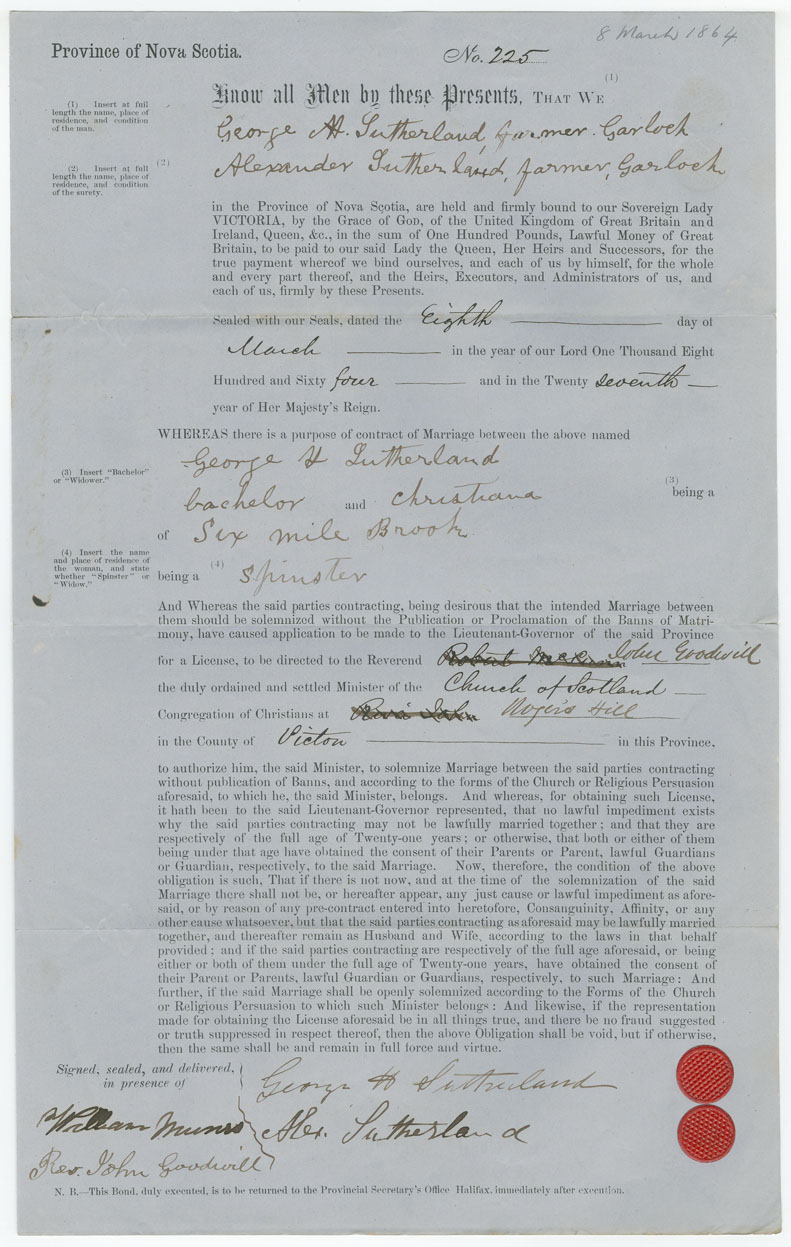 8 March 1864
Province of Nova Scotia.
No. 225
Know all Men by these Presents, THAT WE (1)
(1) Insert at full
length the name, place of
residence, and condition
of the man.
George H. Sutherland, farmer. Garloch
(2) Insert at full
length the name, place of
residence, and condition
of the surety.
(2)
Alexander Sutherland, farmer, Garloch
in the Province of Nova Scotia, are held and firmly bound to our Sovereign Lady
VICTORIA, by the Grace of GOD, of the United Kingdom of Great Britain and
Ireland, Queen, &c., in the sum of One Hundred Pounds, Lawful Money of Great
Britain, to be paid to our said Lady the Queen, Her Heirs and Successors, for the
true payment whereof we bind ourselves, and each of us by himself, for the whole
and every part thereof, and the Heirs, Executors, and Administrators of us, and
each of us, firmly by these Presents.
Sealed with our Seals, dated the Eighth day of
March in the year of our Lord One Thousand Eight
Hundred and Sixty four and in the Twenty seventh
year of Her Majesty's Reign.
WHEREAS there is a purpose of contract of Marriage between the above named
George H Sutherland
(3) Insert "Bachelor"
or "Widower."
(3)
bachelor and Christiana being a
of Six mile Brook
(4) Insert the name
and place of residence of
the woman, and state
whether "Spinster" or
"Widow."
being a (4) Spinster
And Whereas the said parties contracting, being desirous that the intended Marriage between
them should be solemnized without the Publication or Proclamation of the Banns of Matri-
mony, have caused application to be made to the Lieutenant-Governor of the said Province
for a License, to be directed to the Reverend Robert John Goodwill
the duly ordained and settled Minister of the Church of Scotland
Congregation of Christians at River John Roger's Hill
in the County of Pictou in this Province,
to authorize him, the said Minister, to solemnize Marriage between the said parties contracting
without publication of Banns, and according to the forms of the Church or Religious Persuasion
aforesaid, to which he, the said Minister, belongs. And whereas, for obtaining such License,
it hath been to the said Lieutenant-Governor represented, that no lawful impediment exists
why the said parties contracting may not be lawfully married together; and that they are
respectively of the full age of Twenty-one years; or otherwise, that both or either of them
being under that age have obtained the consent of their Parents or Parent, lawful Guardians
or Guardian, respectively, to the said Marriage. Now, therefore, the condition of the above
obligation is such, That if there is not now, and at the time of the solemnization of the said
Marriage there shall not be, or hereafter appear, any just cause or lawful impediment as afore-
said, or by reason of any pre-contract entered into heretofore, Consanguinity, Affinity, or any
other cause whatsoever, but that the said parties contracting as aforesaid may be lawfully married
together, and thereafter remain as Husband and Wife, according to the laws in that behalf
provided; and if the said parties contracting are respectively of the full age aforesaid, or being
either or both of them under the full age of Twenty-one years, have obtained the consent of
their Parent or Parents, lawful Guardian or Guardians, respectively, to such Marriage: And
further, if the said Marriage shall be openly solemnized according to the Forms of the Church
or Religious Persuasion to which such Minister belongs: And likewise, if the representation
made for obtaining the License aforesaid be in all things true, and there be no fraud suggested
or truth suppressed in respect thereof, then the above Obligation shall be void, but if otherwise,
then the same shall be and remain in full force and virtue.
Signed, sealed, and delivered,
in presence of
George H Sutherland
William Munro
Alex. Sutherland
Rev. John Goodwill
N. B.—This Bond, duly executed, is to be returned to the Provincial Secretary's Office Halifax, immediately after execution.